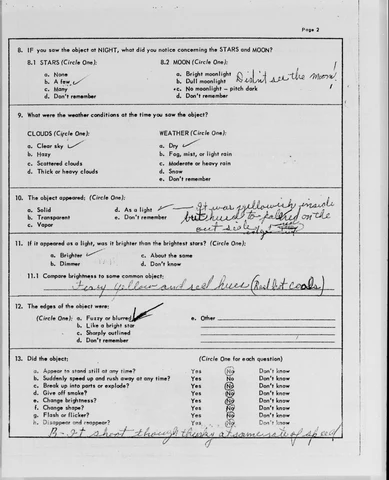 Page 2
8. IF you saw the object at NIGHT, what did you notice concerning the STARS and MOON?
8.1 STARS (Circle One): 8.2 MOON (Circle One):
a. None a. Bright moonlight
b. A few ✓ b. Dull moonlight Didn't see the moon!
c. Many c. No moonlight – pitch dark
d. Don't remember d. Don't remember
9. What were the weather conditions at the time you saw the object?
CLOUDS (Circle One): WEATHER (Circle One):
a. Clear sky ✓ a. Dry ✓
b. Hazy b. Fog, mist, or light rain
c. Scattered clouds c. Moderate or heavy rain
d. Thick or heavy clouds d. Snow
e. Don't remember
10. The object appeared: (Circle One): It was yellowish inside
a. Solid d. As a light ✓ but hued to red on the
b. Transparent e. Don't remember out side edge
c. Vapor
11. If it appeared as a light, was it brighter than the brightest stars? (Circle One):
a. Brighter ✓ c. About the same
b. Dimmer d. Don't know
11.1 Compare brightness to some common object:
Fiery yellow and red hues (Red hot coals)
12. The edges of the object were:
(Circle One): a. Fuzzy or blurred ✓ e. Other
b. Like a bright star
c. Sharply outlined
d. Don't remember
13. Did the object: (Circle One for each question)
a. Appear to stand still at any time? Yes No Don't know
b. Suddenly speed up and rush away at any time? Yes No Don't know
c. Break up into parts or explode? Yes No Don't know
d. Give off smoke? Yes No Don't know
e. Change brightness? Yes No Don't know
f. Change shape? Yes No Don't know
g. Flash or flicker? Yes No Don't know
h. Disappear and reappear? Yes No Don't know
B- It shoot through the sky at same rate of speed